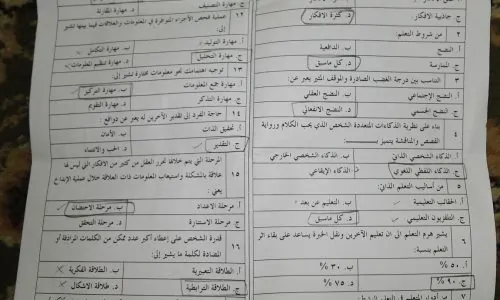 ج. جاذبية الافكار
د. كثرة الافكار
من شروط التعلم: ٢
أ. النضج
ب. الدافعية
ج. الممارسة
د. كل ماسبق
التناسب بين درجة الغضب الصادرة والموقف المثير يعبر عن: ٣
أ. النضج الإجتماعي
ب. النضج العقلي
ج. النضج الجسمي
د. النضج الانفعالي
بناء على نظرية الذكاءات المتعددة الشخص الذي يحب الكلام ورواية ٤
القصص والمناقشة يتميز بـ
أ. الذكاء الشخصي الذاتي
ب. الذكاء الشخصي الخارجي
ج. الذكاء اللفظي اللغوي
د. الذكاء الإيقاعي
من أساليب التعلم الذاتي ٥
أ. الحقائب التعليمية
ب. التعليم عن بعد
ج. التلفزيون التعليمي
د. كل ماسبق
يشير هرم التعلم الى ان تعليم الآخرين ونقل الخبرة يساعد على بقاء اثر ٦
التعلم بنسبة:
أ. ٥٠ %
ب. ٣٠ %
ج. ٩٠ %
د. ٧٥ %
ج. مهارة التصنيف
د. مهارة المقارنة
عملية فحص الأجزاء المتوافرة في المعلومات والعلاقات فيما بينها تشير ١٢
إلى:
أ. مهارة التوليد
ب. مهارة التكامل
ج. مهارة التحليل
د. مهارة تنظيم المعلومات
توجيه اهتماماتك نحو معلومات مختارة تشير إلى: ١٣
أ. مهارة جمع المعلومات
ب. مهارة التركيز
ج. مهارة التذكر
د. مهارة التقويم
حاجة الفرد إلى تقدير الآخرين له يعبر عن دوافع: ١٤
أ. تحقيق الذات
ب. الأمان
ج. التقدير
د. الحب والانتماء
المرحلة التي يتم خلالها تحرر العقل من كثير من الافكار التي ليس لها ١٥
علاقة بالمشكلة واستيعاب المعلومات ذات العلاقة خلال عملية الإبداع
يعني:
أ. مرحلة الاعداد
ب. مرحلة الاحتضان
ج. مرحلة الاستنارة
د. مرحلة التحقق
قدرة الشخص على إعطاء أكبر عدد ممكن من الكلمات المرادفة أو ١٦
المضادة لكلمة ما يشير إلى:
أ. الطلاقة التعبيرية
ب. الطلاقة الفكرية
ج. الطلاقة الترابطية
د. طلاقة الاشكال